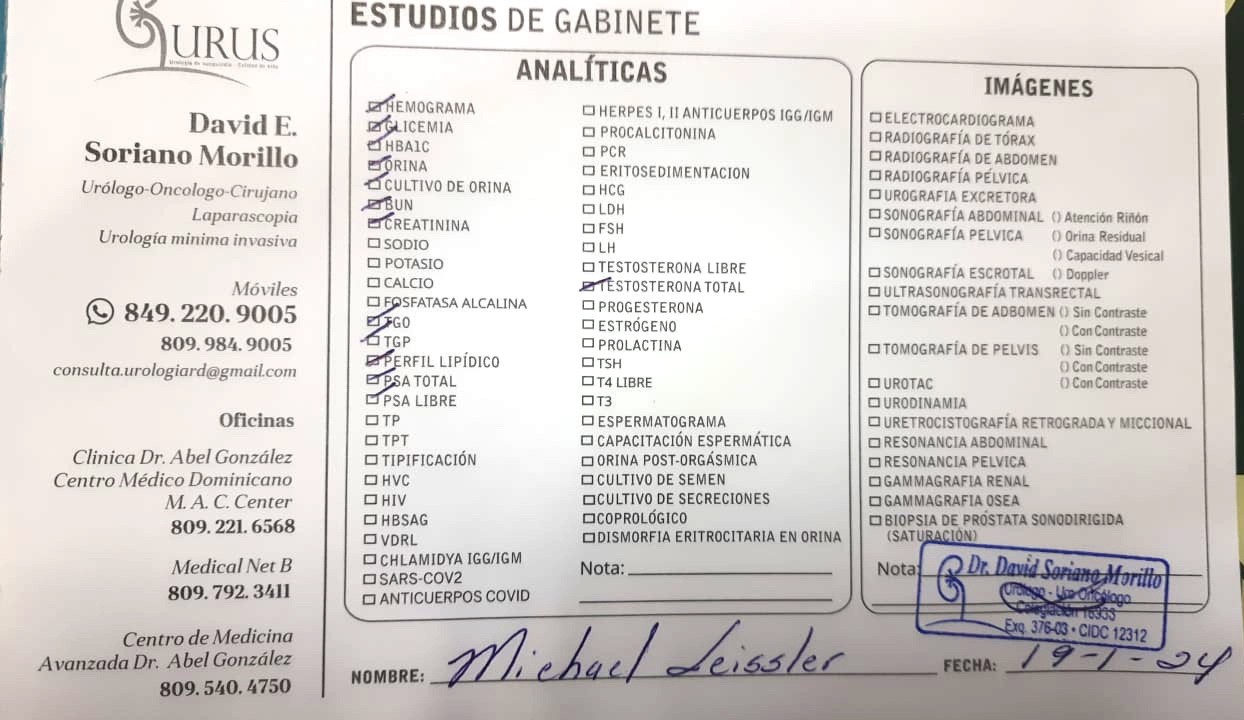 URUS
Urología de vanguardia - Calidad de vida
David E.
Soriano Morillo
Urólogo-Oncologo-Cirujano
Laparascopia
Urología minima invasiva
Móviles
849. 220. 9005
809. 984. 9005
consulta.urologiard@gmail.com
Oficinas
Clinica Dr. Abel González
Centro Médico Dominicano
M. A. C. Center
809. 221. 6568
Medical Net B
809. 792. 3411
Centro de Medicina
Avanzada Dr. Abel González
809. 540. 4750
ESTUDIOS DE GABINETE
ANALÍTICAS
HEMOGRAMA
GLICEMIA
HBA1C
ORINA
CULTIVO DE ORINA
BUN
CREATININA
SODIO
POTASIO
CALCIO
FOSFATASA ALCALINA
TGO
TGP
PERFIL LIPÍDICO
PSA TOTAL
PSA LIBRE
TP
TPT
TIPIFICACIÓN
HVC
HIV
HBSAG
VDRL
CHLAMIDYA IGG/IGM
SARS-COV2
ANTICUERPOS COVID
HERPES I, II ANTICUERPOS IGG/IGM
PROCALCITONINA
PCR
ERITOSEDIMENTACION
HCG
LDH
FSH
LH
TESTOSTERONA LIBRE
TESTOSTERONA TOTAL
PROGESTERONA
ESTRÓGENO
PROLACTINA
TSH
T4 LIBRE
T3
ESPERMATOGRAMA
CAPACITACIÓN ESPERMÁTICA
ORINA POST-ORGÁSMICA
CULTIVO DE SEMEN
CULTIVO DE SECRECIONES
COPROLÓGICO
DISMORFIA ERITROCITARIA EN ORINA
Nota:
IMÁGENES
ELECTROCARDIOGRAMA
RADIOGRAFÍA DE TÓRAX
RADIOGRAFÍA DE ABDOMEN
RADIOGRAFÍA PÉLVICA
UROGRAFIA EXCRETORA
SONOGRAFÍA ABDOMINAL () Atención Riñón
SONOGRAFÍA PELVICA () Orina Residual
() Capacidad Vesical
SONOGRAFÍA ESCROTAL () Doppler
ULTRASONOGRAFÍA TRANSRECTAL
TOMOGRAFÍA DE ADBOMEN () Sin Contraste
() Con Contraste
TOMOGRAFÍA DE PELVIS () Sin Contraste
() Con Contraste
UROTAC () Con Contraste
URODINAMIA
URETROCISTOGRAFÍA RETROGRADA Y MICCIONAL
RESONANCIA ABDOMINAL
RESONANCIA PELVICA
GAMMAGRAFIA RENAL
GAMMAGRAFIA OSEA
BIOPSIA DE PRÓSTATA SONODIRIGIDA
(SATURACIÓN)
Nota:
Dr. David Soriano Morillo
Urólogo - Uro Oncólogo
Colegiación 16333
Exq. 376-03 • CIDC 12312
NOMBRE: Michael Leissler FECHA: 19-1-24